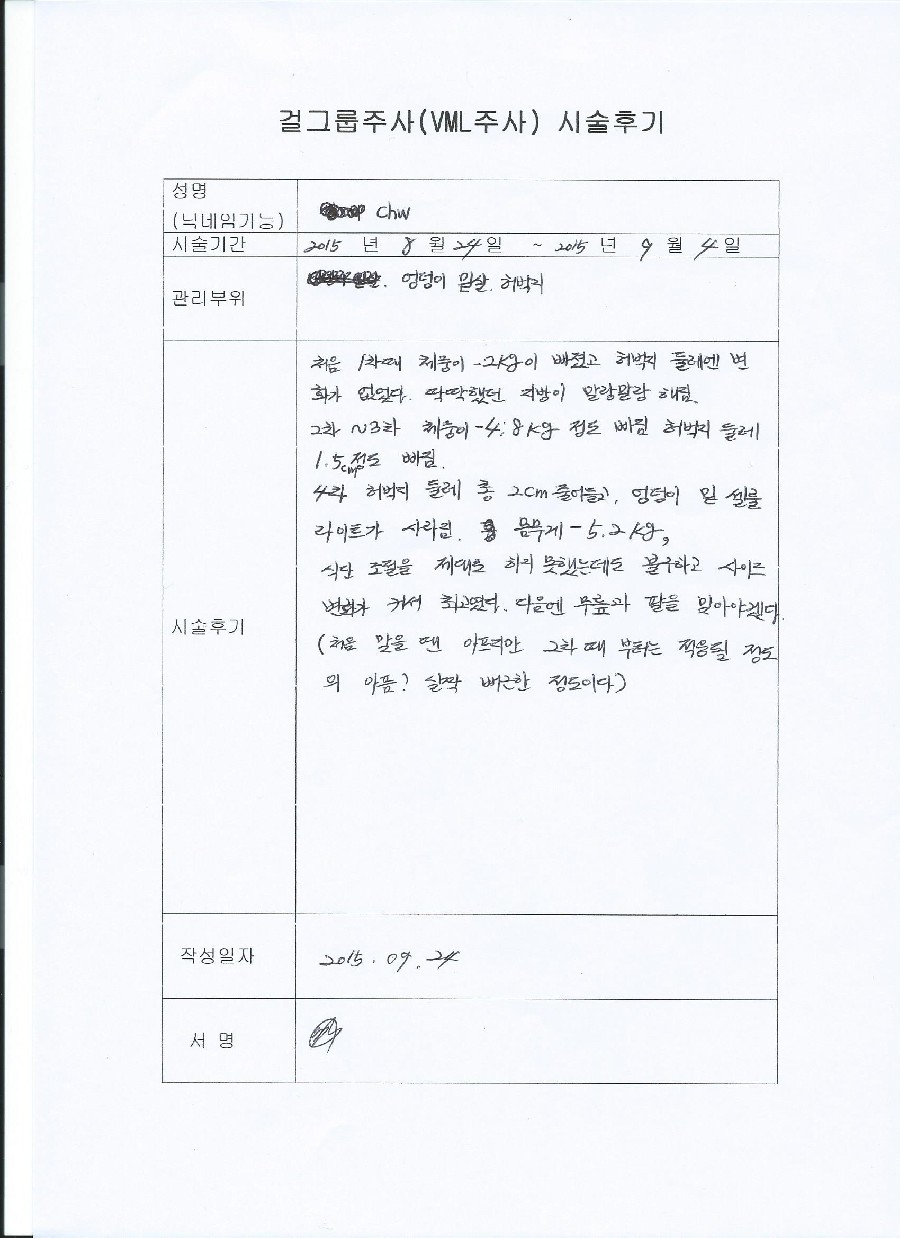 걸그룹주사(VML주사) 시술후기
성명
(닉네임가능) Chw
시술기간 2015 년 8 월 24 일 ~ 2015 년 9 월 4 일
관리부위 엉덩이 밑살, 허벅지
시술후기
처음 1차때 체중이 -2kg이 빠졌고 허벅지 둘레엔 변
화가 없었다. 딱딱했던 지방이 말랑말랑 해짐.
2차 ~3차 체중이 -4.8kg 정도 빠짐 허벅지 둘레
1.5cm정도 빠짐.
4차 허벅지 둘레 총 2cm 줄어들고, 엉덩이 밑 셀룰
라이트가 사라짐. 몸무게 -5.2kg,
식단 조절을 제대로 하지 못했는데도 불구하고 사이즈
변화가 커서 최고였다. 다음엔 무릎과 팔을 맞아야겠다.
(처음 맞을 땐 아프지만 2차 때 부터는 적응될 정도
의 아픔? 살짝 뻐근한 정도이다)
작성일자 2015. 09. 24
서 명